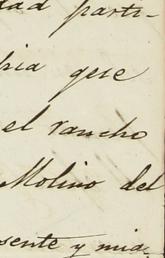 dad parti-
pia gese
el rancho
Molino del
sente y mia